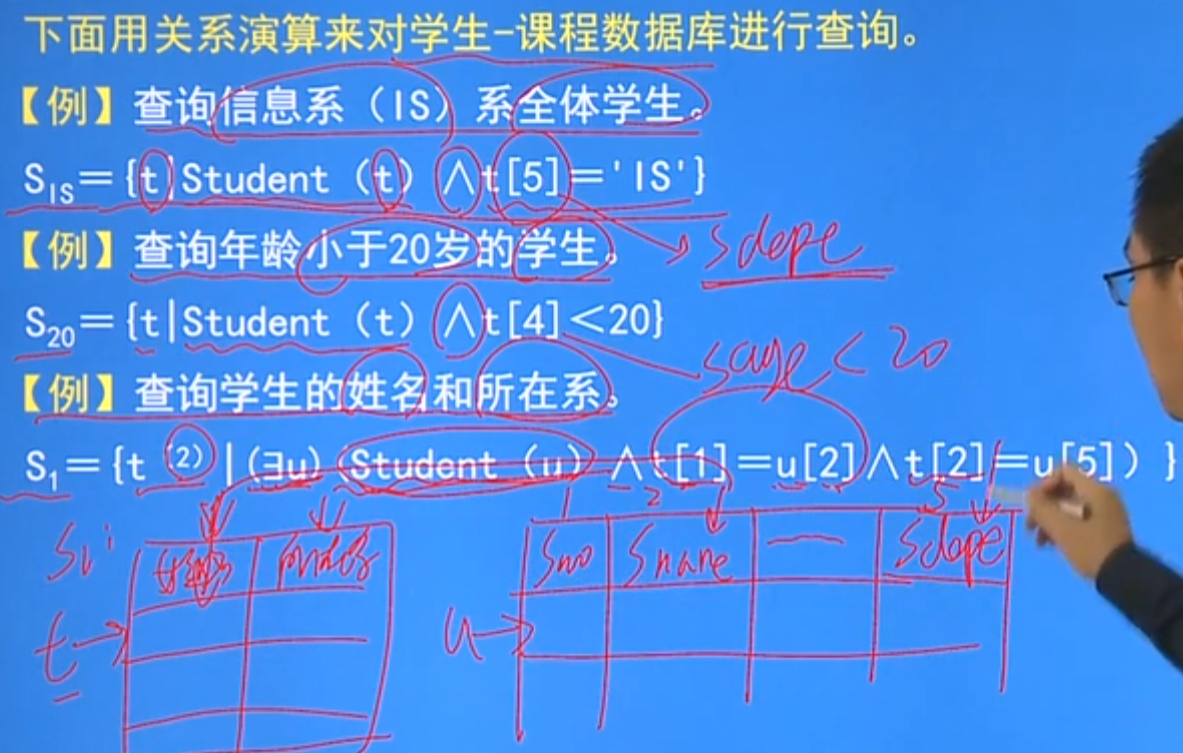 下面用关系演算来对学生-课程数据库进行查询。
【例】查询信息系（IS）系全体学生。
S_IS={t|Student（t）∧t[5]='IS'}
sdepe
【例】查询年龄小于20岁的学生。
S₂₀={t|Student（t）∧t[4]<20}
sage<20
【例】查询学生的姓名和所在系。
S₁={t⁽²⁾|(∃u)(Student（u）∧t[1]=u[2]∧t[2]=u[5]）}
1 2 5
S₁: 姓名 所在系 Sno Sname — Sdepe
t u